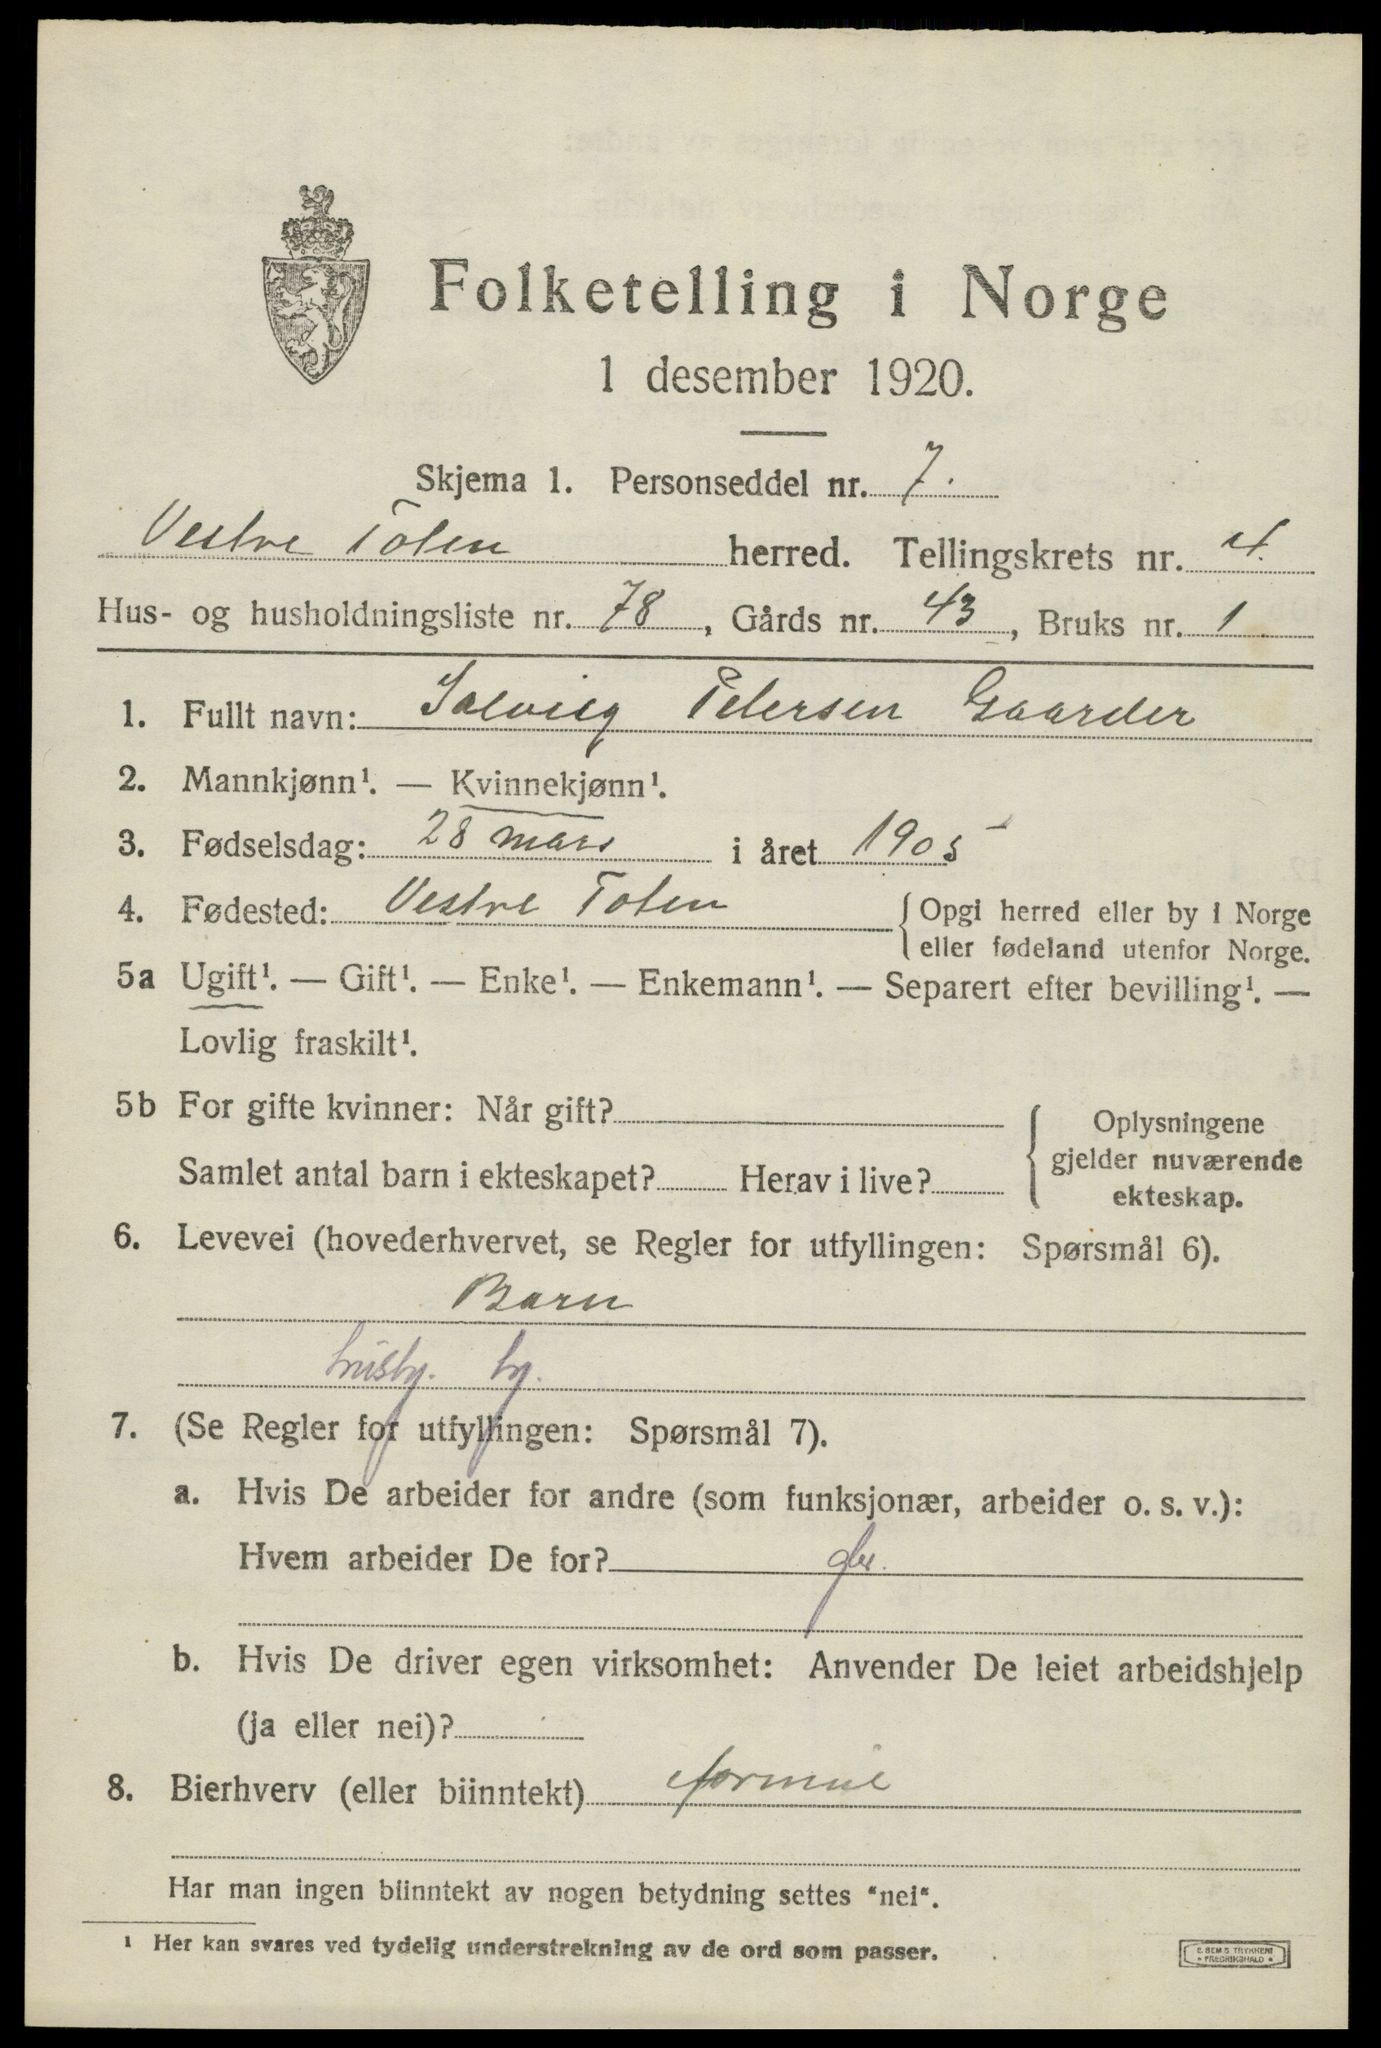 Folketelling i Norge
1 desember 1920.
Skjema 1. Personseddel nr. 7.
Vestre Toten herred. Tellingskrets nr. 4.
Hus- og husholdningsliste nr. 78, Gårds nr. 43, Bruks nr. 1
1. Fullt navn: Solveig Petersen Gaarder
2. Mannkjønn¹. — Kvinnekjønn¹.
3. Fødselsdag: 28 mars i året 1905
4. Fødested: Vestre Toten
{Opgi herred eller by i Norge
eller fødeland utenfor Norge.
5a Ugift¹. — Gift¹. — Enke¹. — Enkemann¹. — Separert efter bevilling¹. —
Lovlig fraskilt¹.
5b For gifte kvinner: Når gift?
Samlet antal barn i ekteskapet? Herav i live?
{Oplysningene
gjelder nuværende
ekteskap.
6. Levevei (hovederhvervet, se Regler for utfyllingen: Spørsmål 6).
Barn
7. (Se Regler for utfyllingen: Spørsmål 7).
a. Hvis De arbeider for andre (som funksjonær, arbeider o. s. v.):
Hvem arbeider De for? gbr.
b. Hvis De driver egen virksomhet: Anvender De leiet arbeidshjelp
(ja eller nei)?
8. Bierhverv (eller biinntekt)
Har man ingen biinntekt av nogen betydning settes "nei".
¹ Her kan svares ved tydelig understrekning av de ord som passer.
E. SEM'S TRYKKERI
• FREDRIKSHALD •